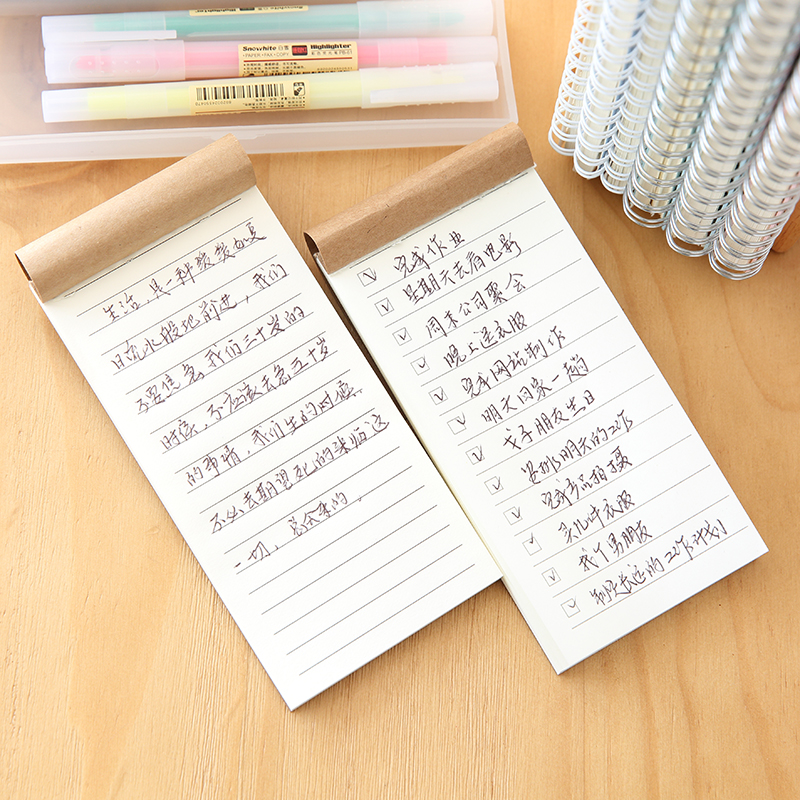 Snowhite 白雪
Highlighter
•PAPER•FAX•COPY
生活,是一种缓缓如夏
日流水般地前进,我们
不要焦急,我们三十岁的
时候,不应该去急五十岁
的事情,我们生的时候,
不必去期望死的来临,这
一切,总会来的。
完成作业
星期天去看电影
周末公司聚会
晚上送衣服
完成网站制作
明天回家一趟
女子朋友生日
安排明天的工作
完成产品拍摄
买几件衣服
找个男朋友
制定长远的工作计划